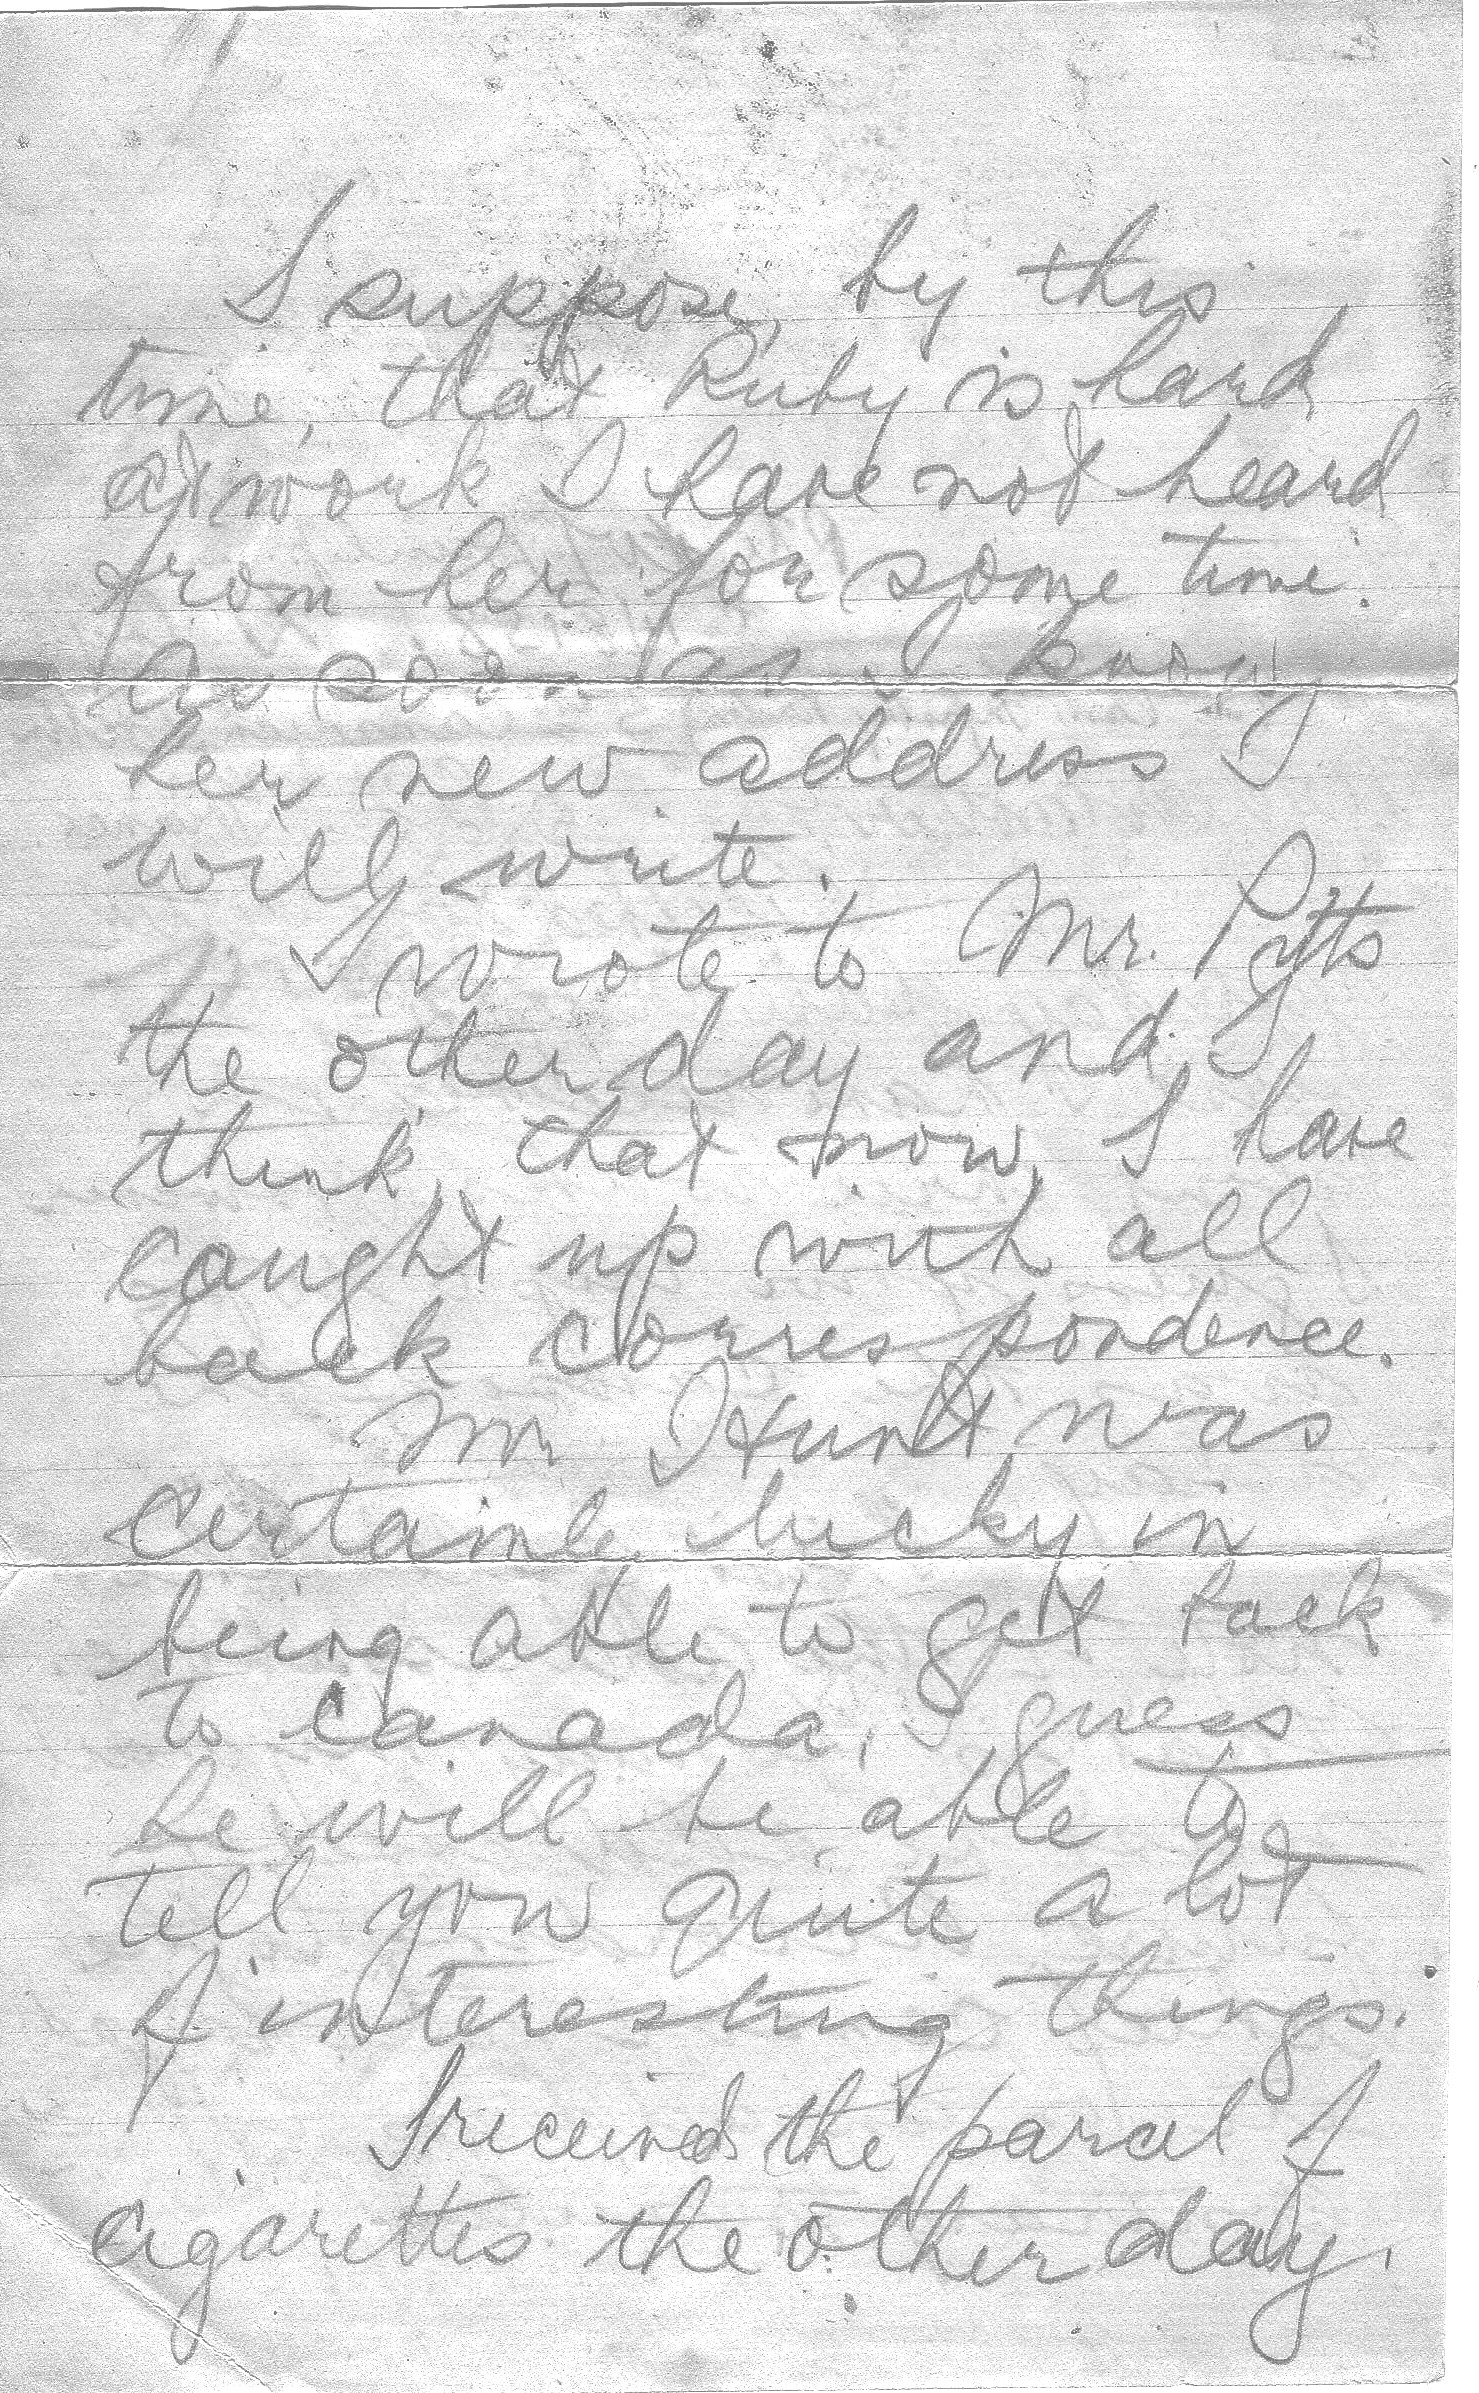 I suppose, by this
time, that Ruby is hard
at work I have not heard
from her for some time.
As soon as I know
her new address I
will write.
I wrote to Mr. Pitts
the other day and I
think, that now, I have
caught up with all
back correspondence.
Mr Hunt was
certainly lucky in
being able to get back
to Canada, I guess
he will be able to
tell you quite a lot
of interesting things.
I received the parcel of
cigarettes the other day.